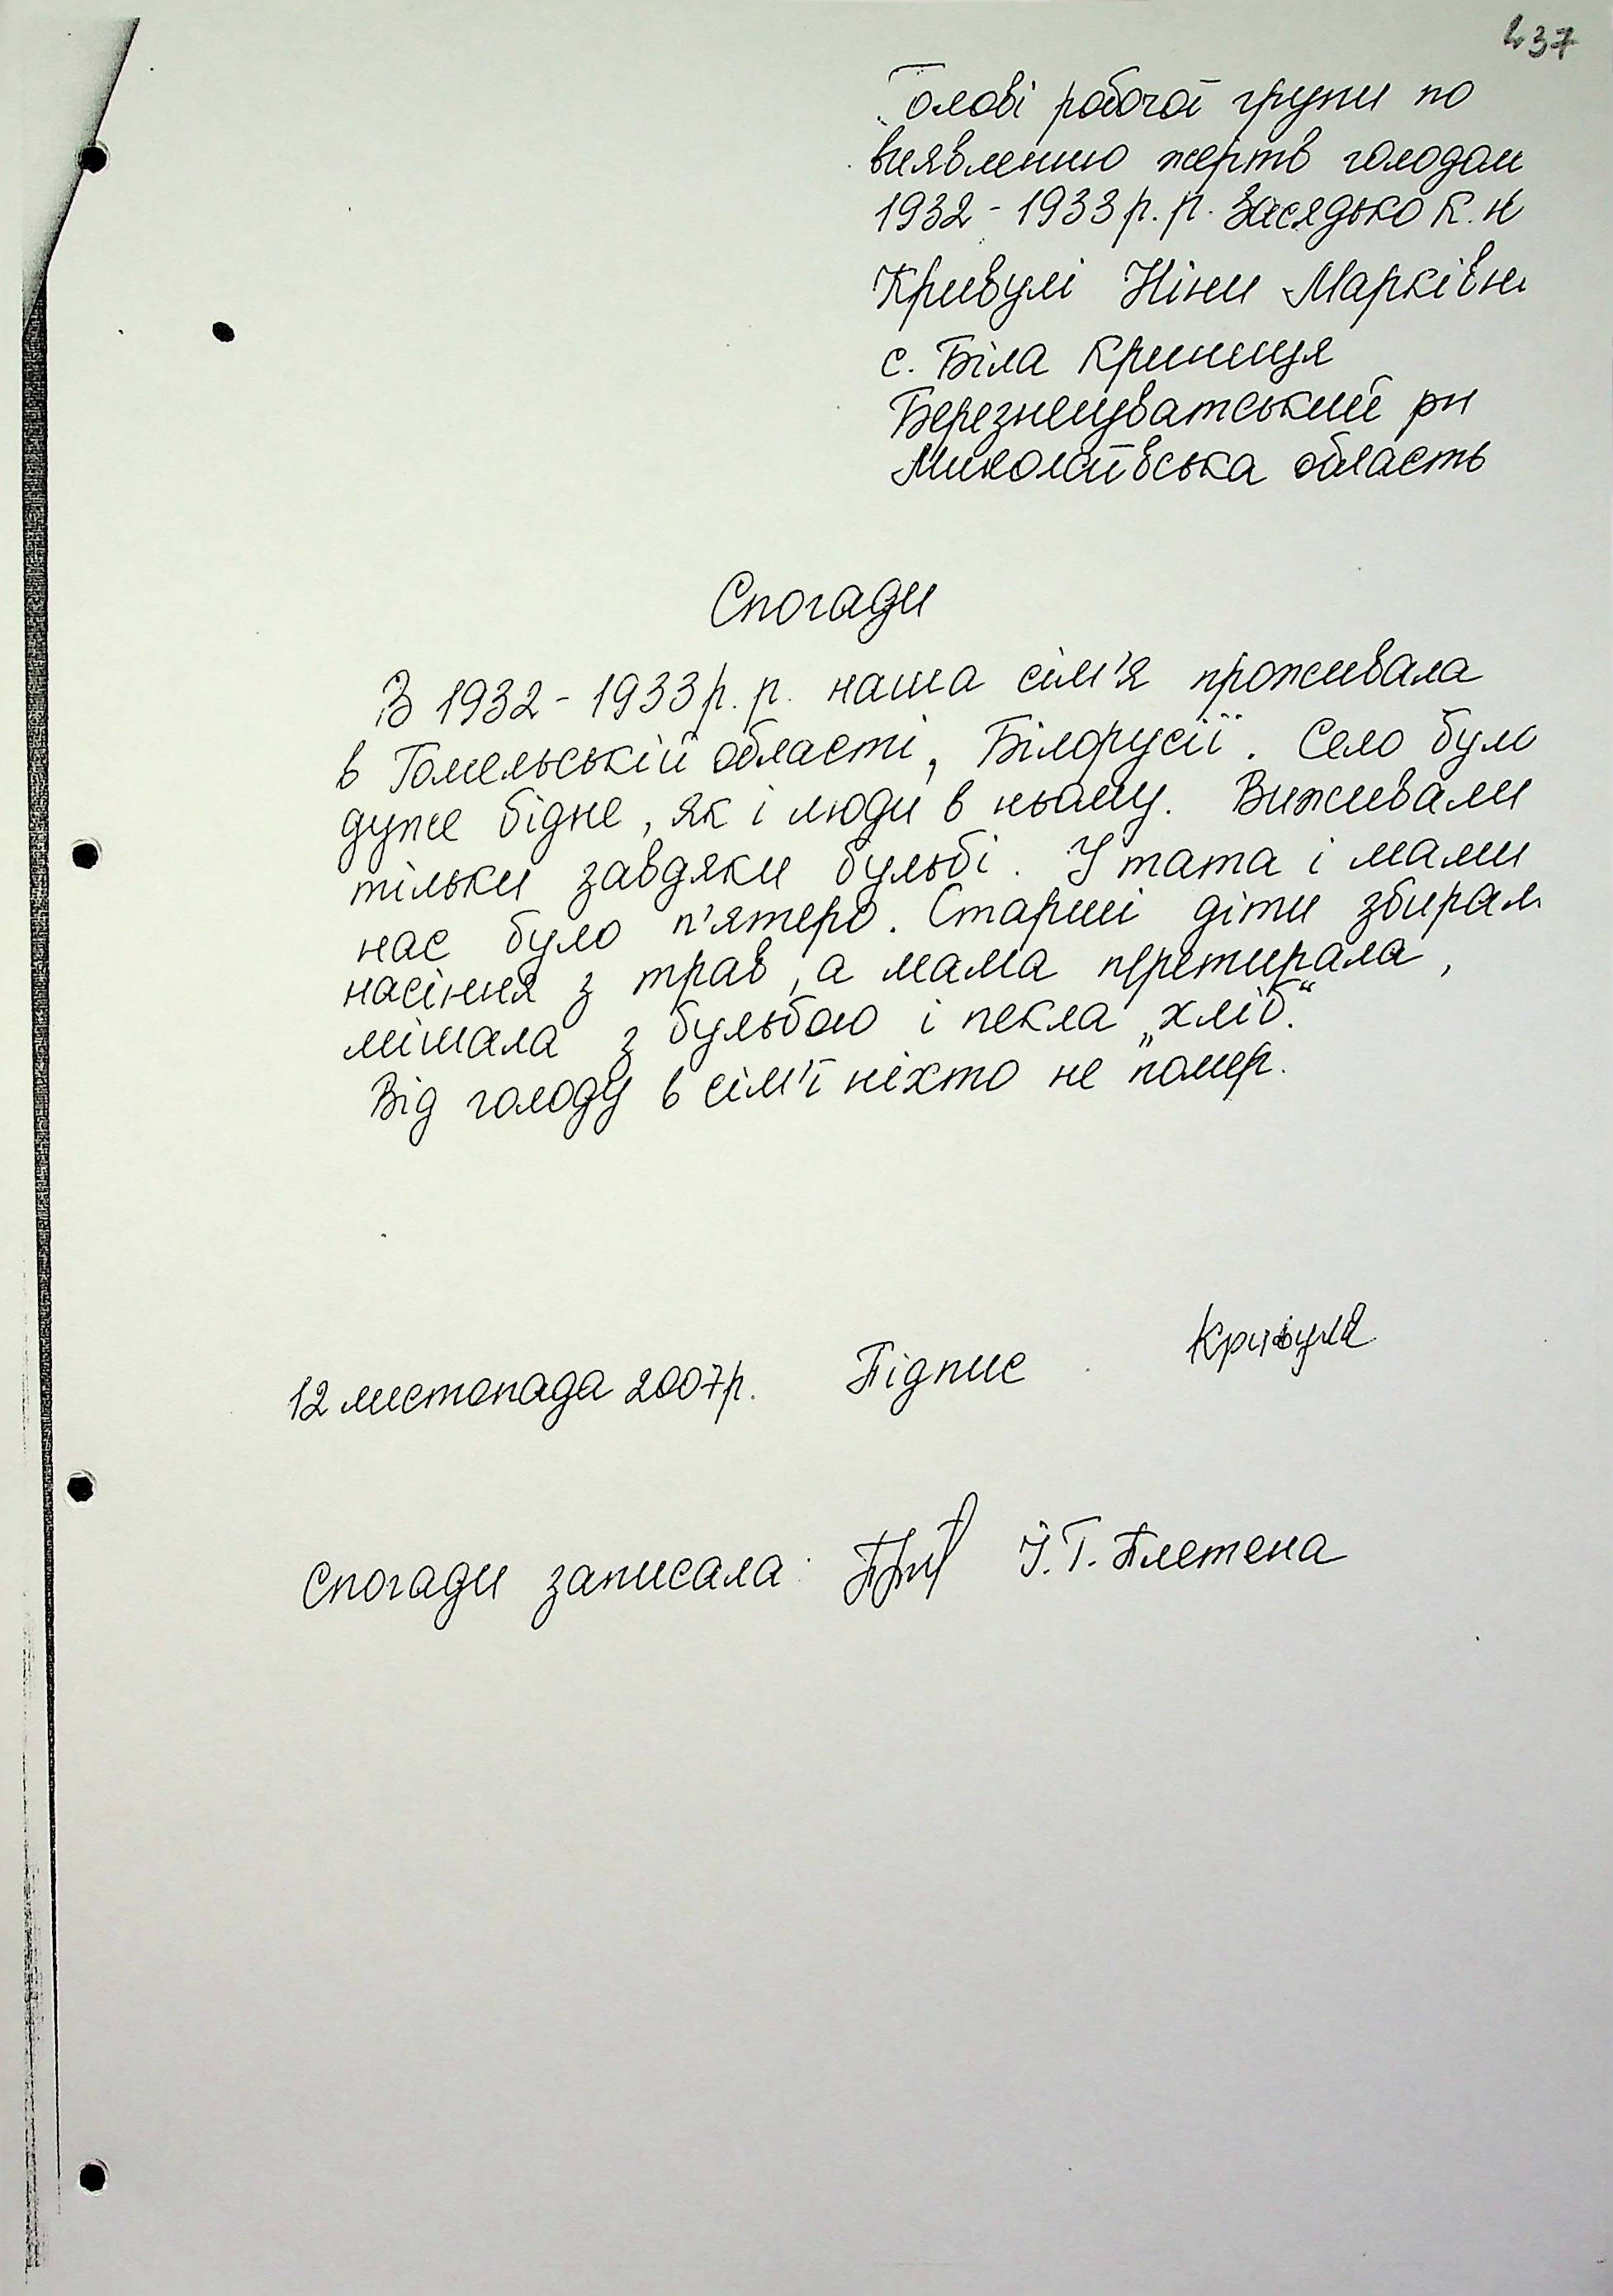 437
Голові робочої групи по
виявленню жертв голодом
1932 - 1933 р. р. Засядько К. Н
Кривулі Ніни Марківн
с. Біла Криниця
Березнегуватський рн
Миколаївська область
Спогади
В 1932 - 1933 р. р. наша сім'я проживала
в Гомельській області, Білорусії. Село було
дуже бідне, як і люди в ньому. Виживали
тільки завдяки бульбі. У тата і мами
нас було п'ятеро. Старші діти збирали
насіння з трав, а мама перетирала,
мішала з бульбою і пекла „хліб“.
Від голоду в сім'ї ніхто не помер.
12 листопада 2007 р. Підпис Кривуля
Спогади записала: І. Г. Плетена